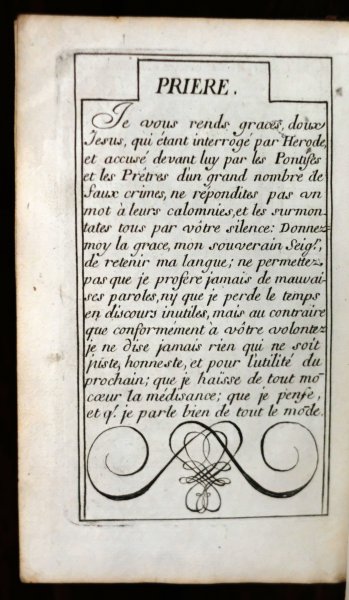 PRIERE.
Je vous rends graces, doux
Jesus, qui étant interrogé par Herode,
et accusé devant luy par les Pontifes
et les Prêtres d'un grand nombre de
faux crimes, ne répondites pas un
mot à leurs calomnies, et les surmon-
tates tous par vôtre silence: Donnez-
moy la grace, mon souverain Seigr.,
de retenir ma langue; ne permettez
pas que je profere jamais de mauvai-
ses paroles, ny que je perde le temps
en discours inutiles, mais au contraire
que conformément à vôtre volontez
je ne dise jamais rien qui ne soit
juste, honneste, et pour l'utilité du
prochain; que je haisse de tout mō
cœur la médisance; que je pense,
et q̃. je parle bien de tout le mōde.